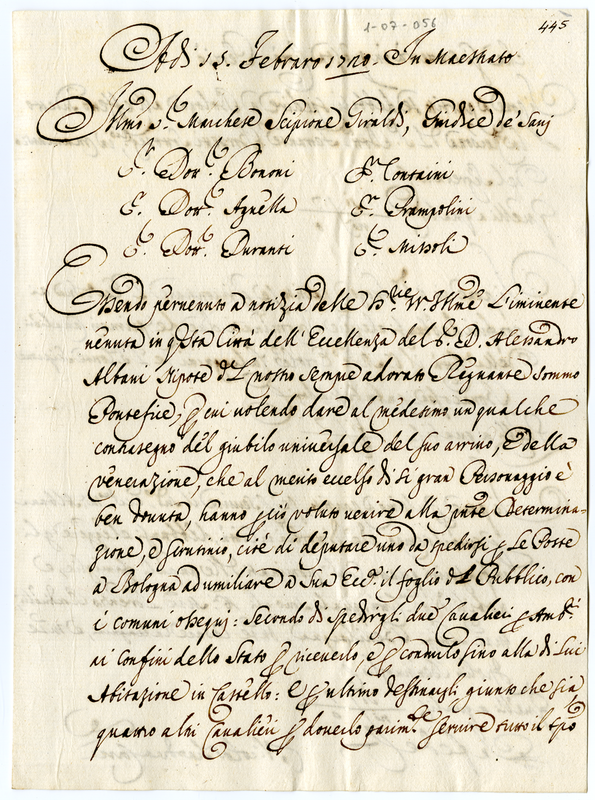 1-07-056
445
Adi 15. Febraro 1720. In Maestrato
Illmo Sr. Marchese Scipione Giraldi, Giudice de' Savj
Sr. Dor. Bononi Sr. Containi
Sr. Dor. Agnella Sr. Prampolini
Sr. Dor. Duranti Sr. Missoli
Essendo pervenuto a notizia delle Srie VV. Illme L'iminente
venuta in qsta Città dell'Eccellenza del Sr. D. Alessandro
Albani Nipote del nostro sempre adorato Regnante sommo
Pontefice, p cui volendo dare al medesimo un qualche
contrasegno del giubilo universale del suo arrivo, e della
venerazione, che al merito eccelso di si gran Personaggio è
ben dovuta, hanno p ciò voluto venire alla pnte Determina-
zione, e scrutinio, cioè di deputare uno da spedirsi p Le Poste
a Bologna ad umiliare a Sua Ecc. il foglio del Pubblico, con
i comuni ossequj: Secondo di spedirgli due Cavalieri p Amb.
ai confini dello Stato p riceverlo, e p condurlo sino alla di Lui
Abitazione in Castello: e p ultimo destinargli giunto che sia
quattro altri Cavalieri p doverlo parimte servire tutto il tpo